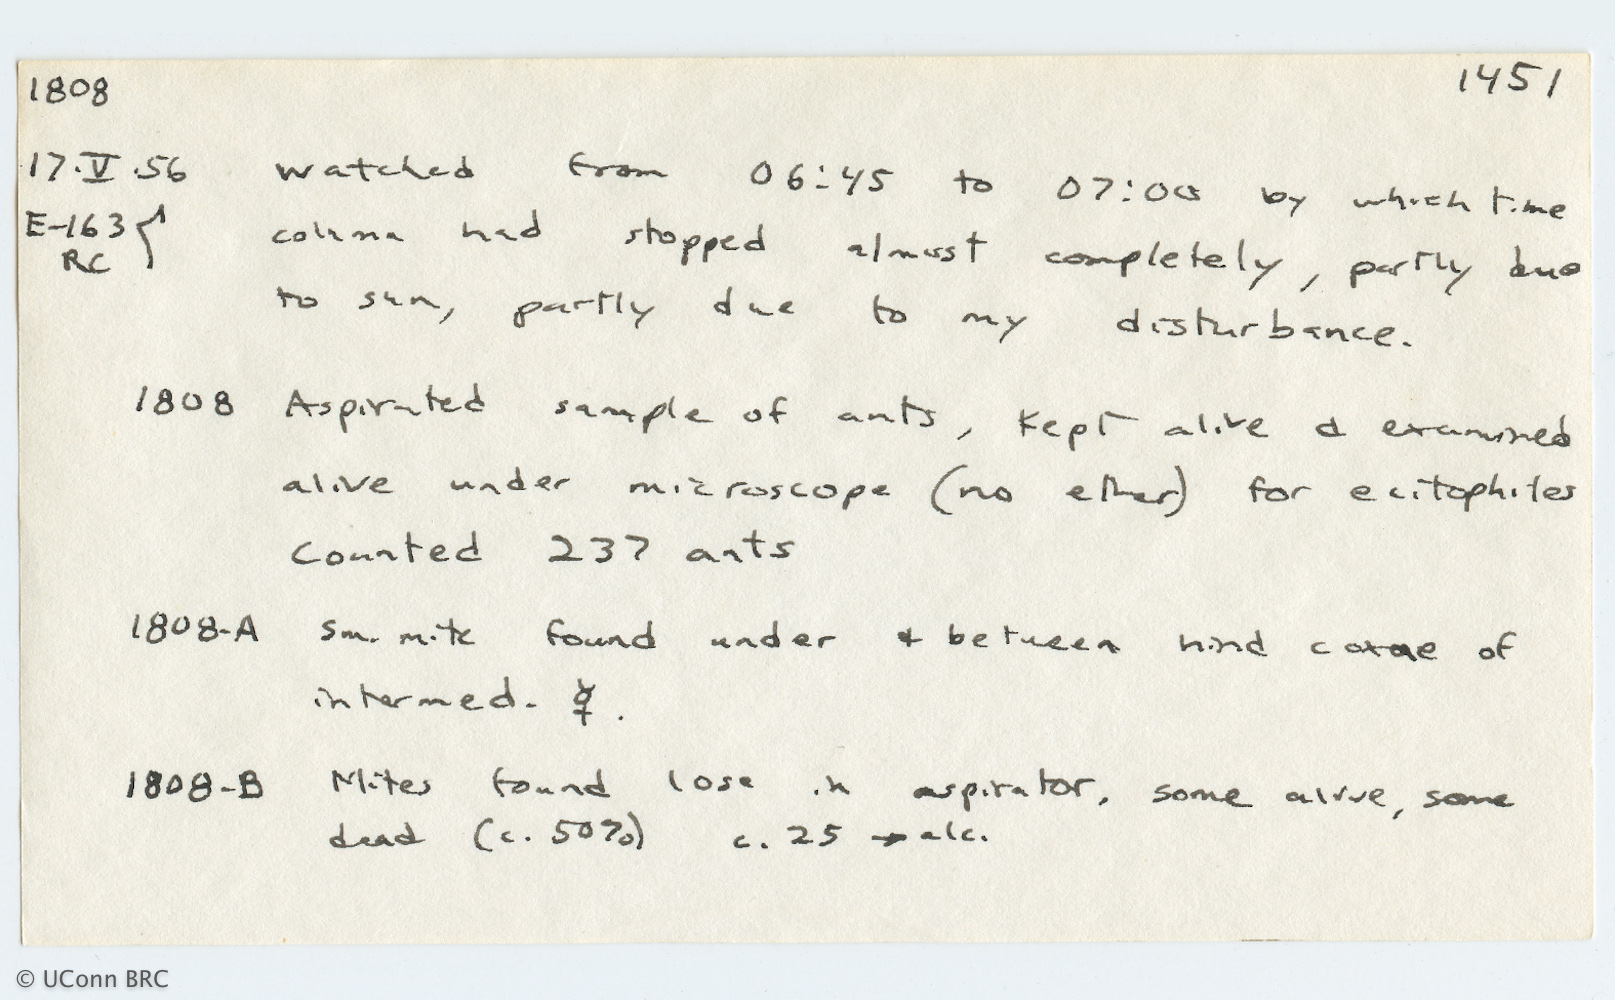 1808 1451
17.V.56 watched from 06:45 to 07:00 by which time
E-163 column had stopped almost completely, partly due
RC to sun, partly due to my disturbance.
1808 Aspirated sample of ants, kept alive & examined
alive under microscope (no ether) for ecitophiles
Counted 237 ants
1808-A Sm. mite found under & between hind coxae of
intermed. ☿.
1808-B Mites found lose in aspirator, some alive, some
dead (c. 50%) c. 25 → alc.
© UConn BRC